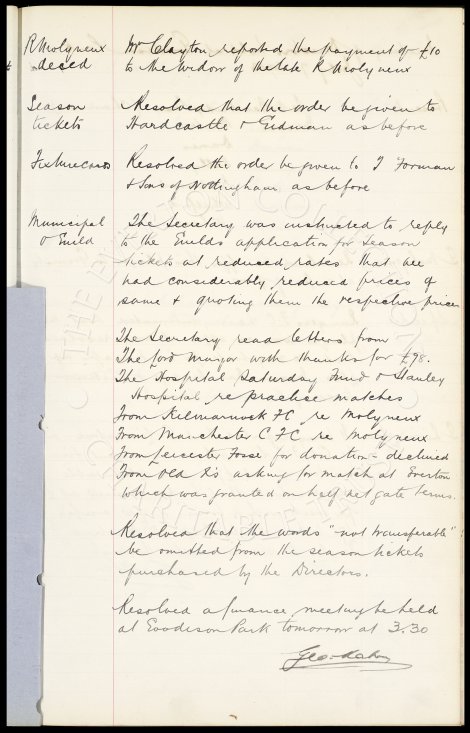 R Molyneux
deced
Mr Clayton reported the payment of £10
to the widow of the late R Molyneux
Season
tickets
Resolved that the order be given to
Hardcastle & Erdman as before
Fixture cards
Resolved the order be given to T Forman
& Sons of Nottingham as before
Municipal
& Guild
The Secretary was instructed to reply
to the Guilds application for season
tickets at reduced rates that we
had considerably reduced prices of
same & quoting them the respective prices
The Secretary read letters from
The Lord Mayor with thanks for £98.
The Hospital Saturday Fund & Stanley
Hospital re practice matches
From Kilmarnock FC re Molyneux
From Manchester C FC re Molyneux
From Leicester Fosse for donation - declined
From Old Xs asking for match at Everton
which was granted on half net gate terms.
Resolved that the words "not transferable"
be omitted from the season tickets
purchased by the Directors.
Resolved a finance meeting be held
at Goodison Park tomorrow at 3.30
Geo. Mahon